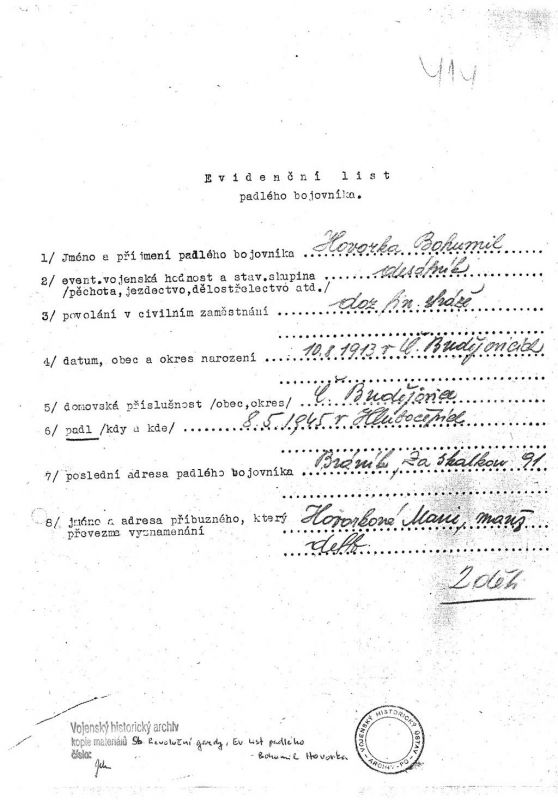 414
Evidenční list
padlého bojovníka.
1/ Jméno a příjmení padlého bojovníka Hovorka Bohumil
2/ event.vojenská hodnost a stav.skupina desátník
/pěchota,jezdectvo,dělostřelectvo atd./
3/ povolání v civilním zaměstnání doz fin. stráže
4/ datum, obec a okres narození 10.8.1913 v Č. Budějovicích
5/ domovská příslušnost /obec,okres/ Č. Budějovice
6/ padl /kdy a kde/ 8.5.1945 v Hlubočepích
7/ poslední adresa padlého bojovníka Bráník, Za skalkou 91
8/ jméno a adresa příbuzného, který Hovorková Marie, manž
převezme vyznamenání
2 děti
Vojenský historický archiv
kopie materiálů Sb Revoluční gardy, Ev list padlého
číslo: - Bohumil Hovorka
VOJENSKÝ HISTORICKÝ ÚSTAV
ARCHIV - PO